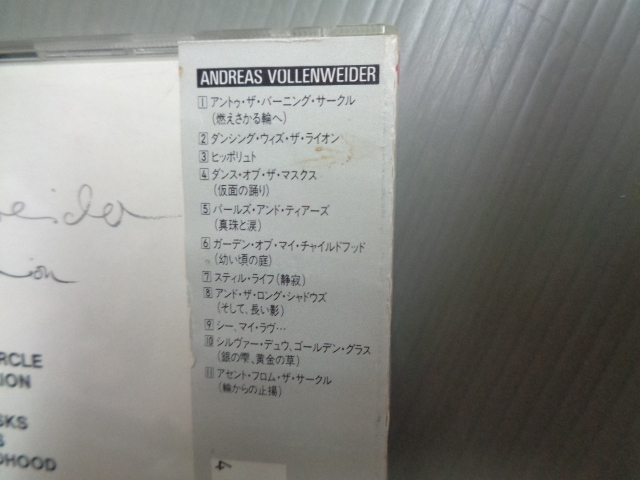 ANDREAS VOLLENWEIDER
1 アントゥ・ザ・バーニング・サークル
(燃えさかる輪へ)
2 ダンシング・ウィズ・ザ・ライオン
3 ヒッポリュト
4 ダンス・オブ・ザ・マスクス
(仮面の踊り)
5 パールズ・アンド・ティアーズ
(真珠と涙)
6 ガーデン・オブ・マイ・チャイルドフッド
(幼い頃の庭)
7 スティル・ライフ(静寂)
8 アンド・ザ・ロング・シャドウズ
(そして、長い影)
9 シー、マイ・ラヴ…
10 シルヴァー・デュウ、ゴールデン・グラス
(銀の雫、黄金の草)
11 アセント・フロム・ザ・サークル
(輪からの止揚)
4
eider
ion
RCLE
ION
SKS
S
DHOOD